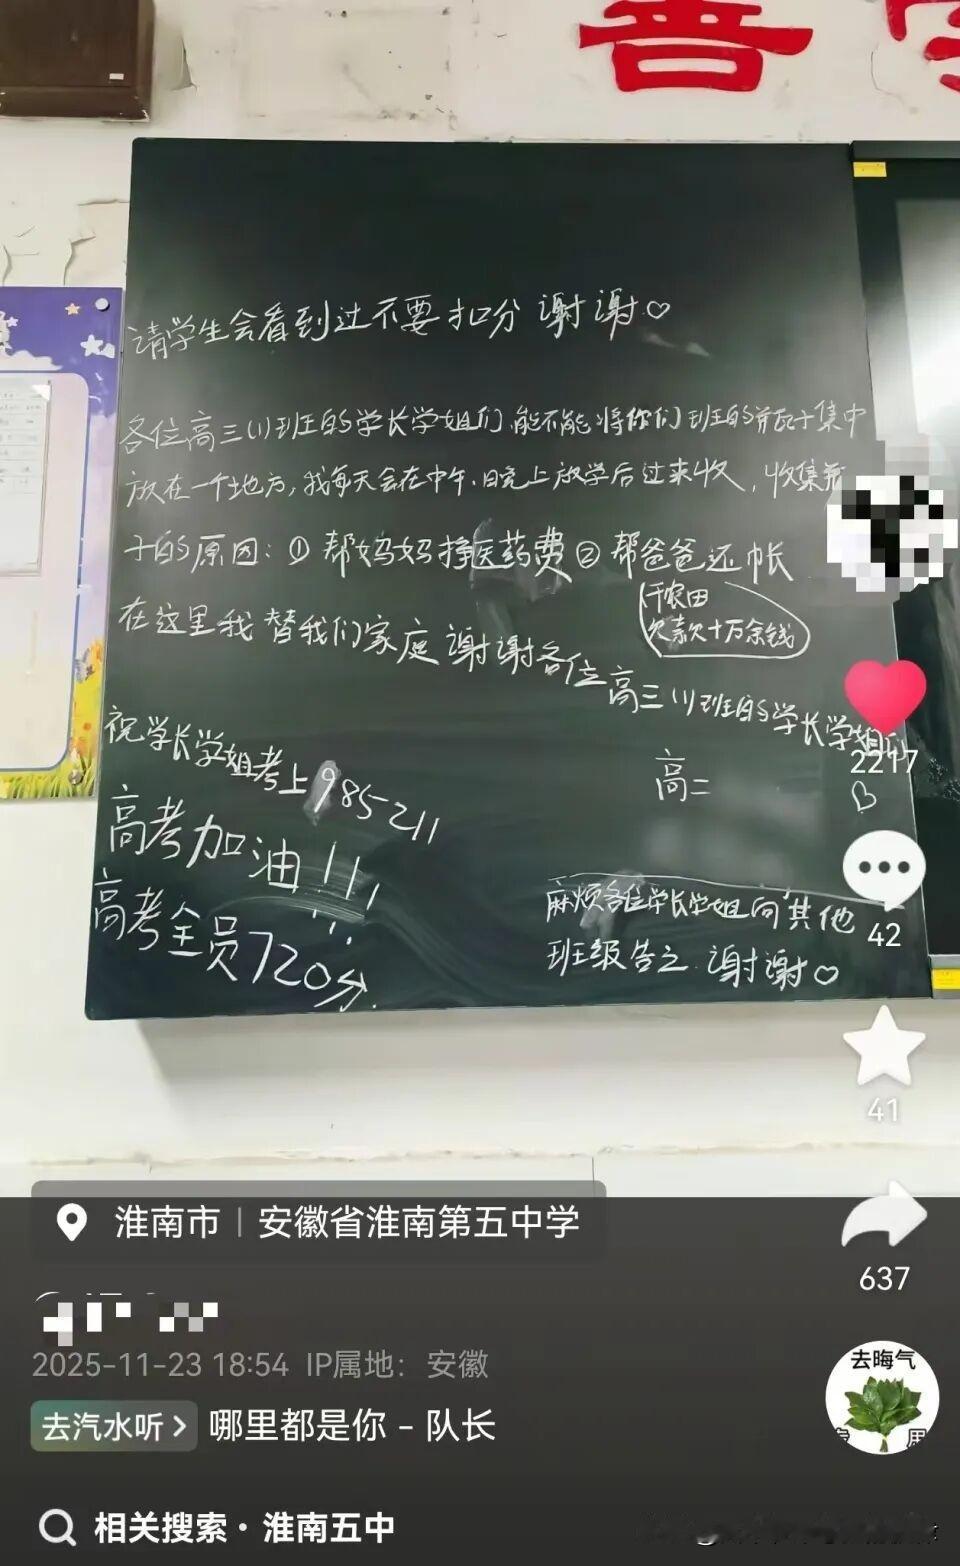 请学生会看到过不要扣分 谢谢♡
各位高三(1)班的学长学姐们,能不能将你们班的瓶子集中
放在一个地方,我每天会在中午、晚上放学后过来收,收集瓶
子的原因:① 帮妈妈挣医药费② 帮爸爸还帐
干农田
欠款欠十万余钱
在这里我替我们家庭谢谢各位高三(1)班的学长学姐们
高二
祝学长学姐考上985211
高考加油!!!
高考全员720分.
麻烦各位学长学姐向其他
班级告之.谢谢♡
2217
42
41
637
淮南市|安徽省淮南第五中学
2025-11-23 18:54 IP属地:安徽
去汽水听 > 哪里都是你 - 队长
去晦气
相关搜索·淮南五中